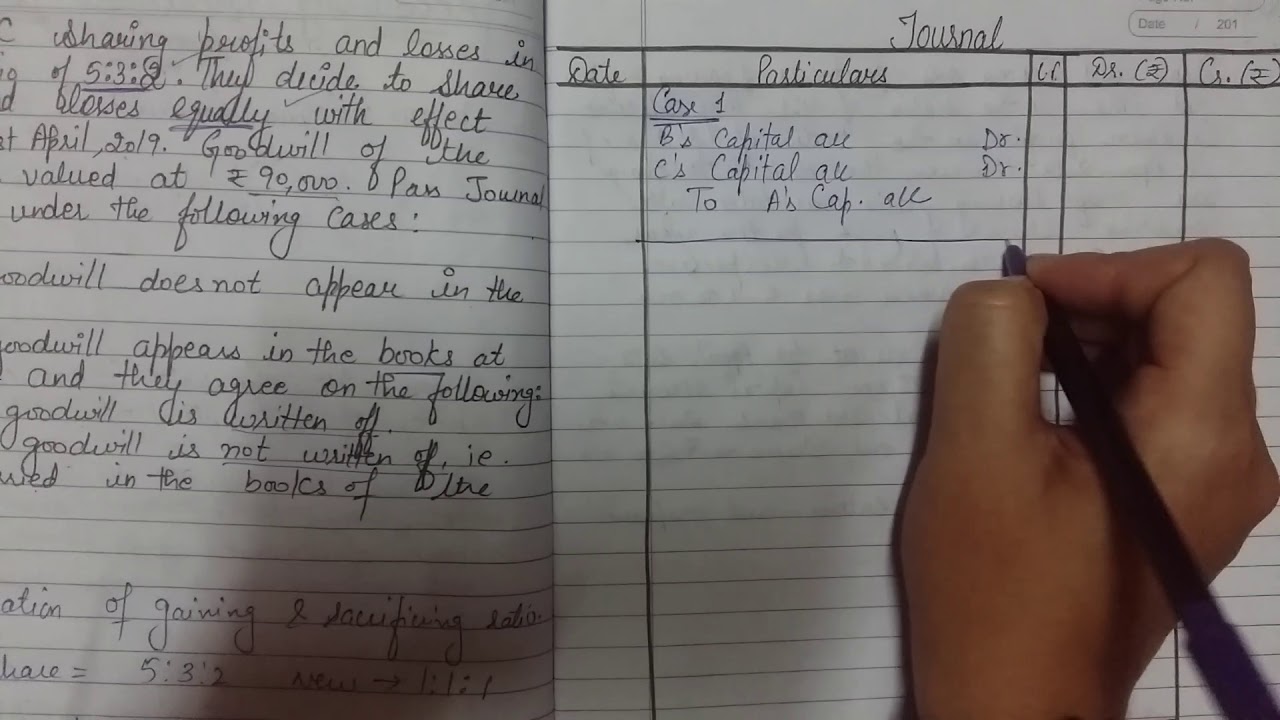 C sharing profits and losses in
of 5:3:2. They decide to share
losses equally with effect
st April, 2019. Goodwill of the
valued at ₹ 90,000. Pass Journal
under the following cases:
oodwill does not appear in the
goodwill appears in the books at
and they agree on the following:
goodwill is written off.
goodwill is not written of, ie.
in the books of the
ation of gaining & sacrificing ratio.
hare = 5:3:2 new → 1:1:1
Date / 201
Journal
Date Particulars L.F. Dr. (₹) Cr. (₹)
Case 1
B's Capital a/c Dr.
C's Capital a/c Dr.
To A's Cap. a/c